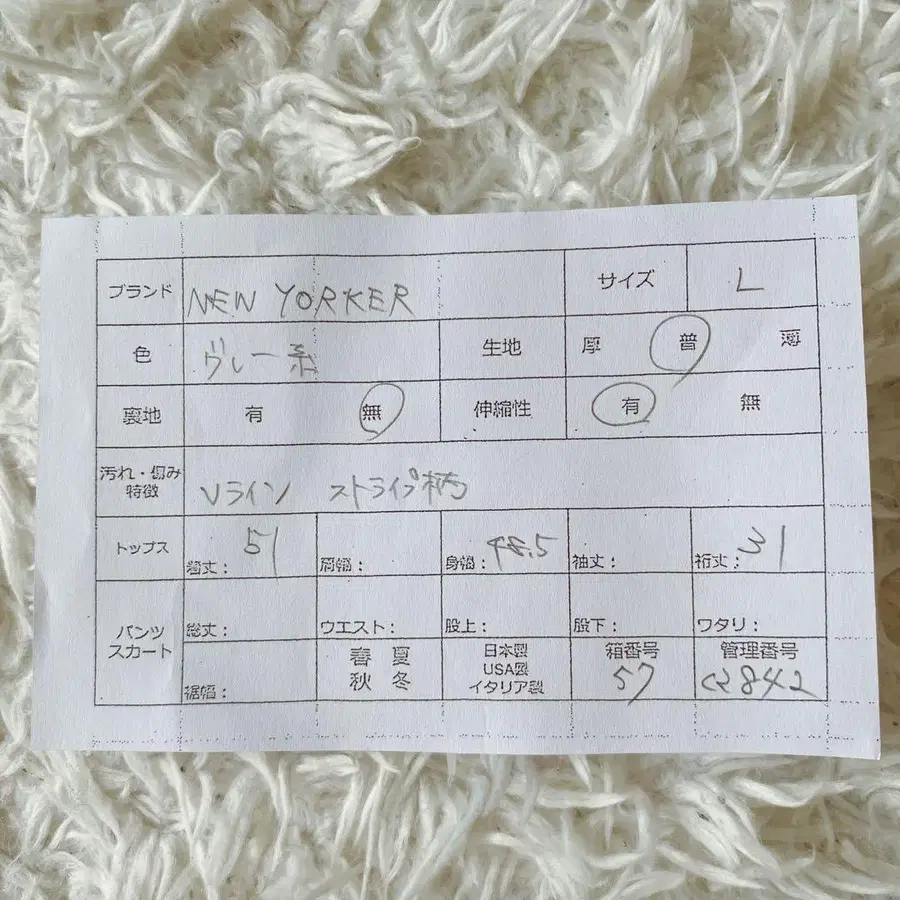 ブランド NEW YORKER サイズ L
色 グレー系 生地 厚 普 薄
裏地 有 無 伸縮性 有 無
汚れ・傷み 特徴 Vライン ストライプ柄
トップス 着丈: 51 肩幅: 身幅: 48.5 袖丈: 裄丈: 31
パンツ スカート 総丈: ウエスト: 股上: 股下: ワタリ:
裾幅: 春 夏 秋 冬 日本製 USA製 イタリア製 箱番号 57 管理番号 C2842